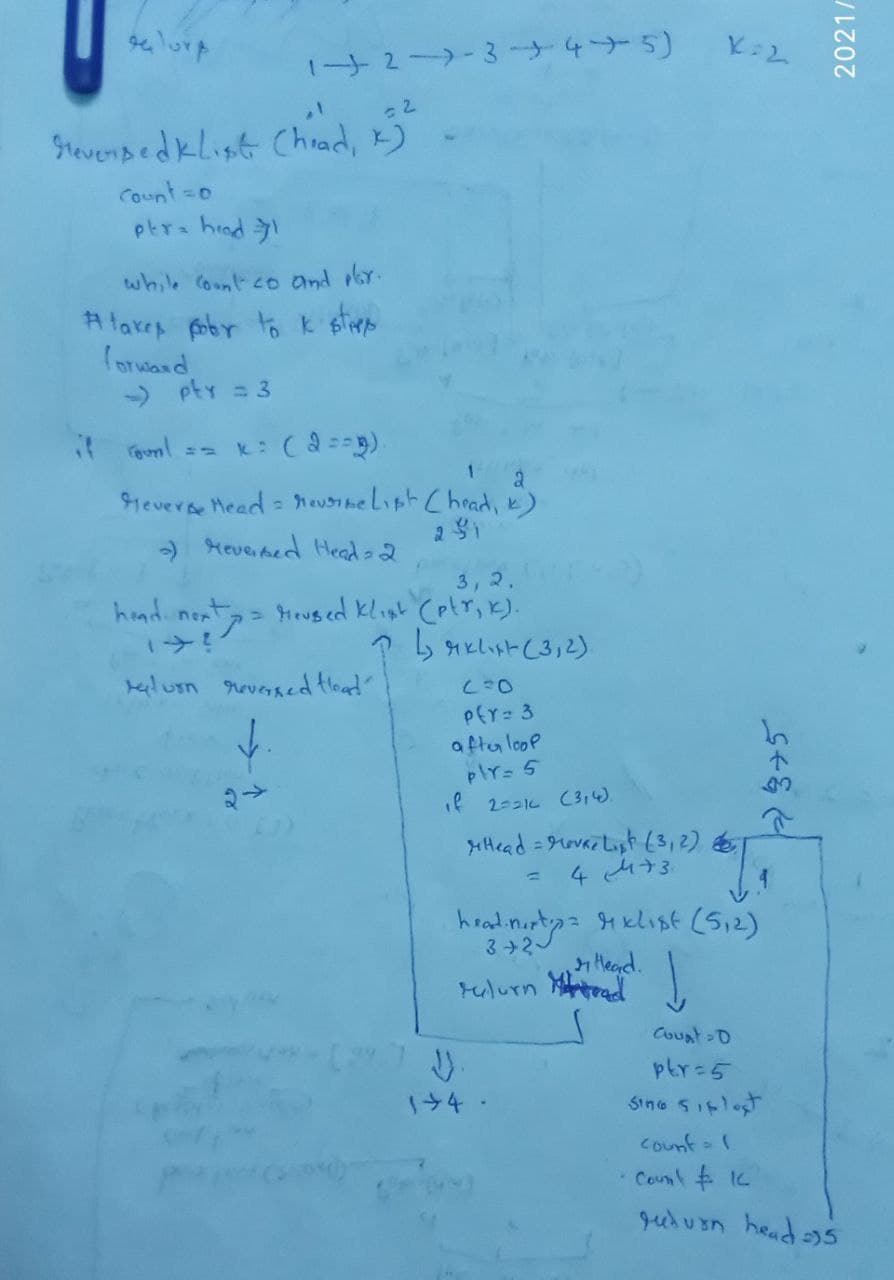 return
1 → 2 → 3 → 4 → 5) K=2
2021/
1 =2
reversedkList (head, k)
count=0
ptr = head ⇒ 1
while count <0 and ptr.
# takes pobr to k steps
forward
⇒ ptr = 3
if count == k: (2==2).
1 2
reverseHead = reverseList (head, k)
2 → 1
⇒ reversed Head = 2
3, 2.
head.next = reversedKlist (ptr, k).
1 → ?
↳ rklist (3,2)
return reversedHead
↓.
2 →
c=0
ptr = 3
after loop
ptr = 5
if 2==k (3,4)
rHead = reverseList (3,2)
= 4 4→3
head.next = rklist (5,2)
3 → ?
rHead.
return
⇓.
1→4.
3→5
↓
count=0
ptr=5
since 5 is last
count = 1
count ≠ k
return head ⇒ 5